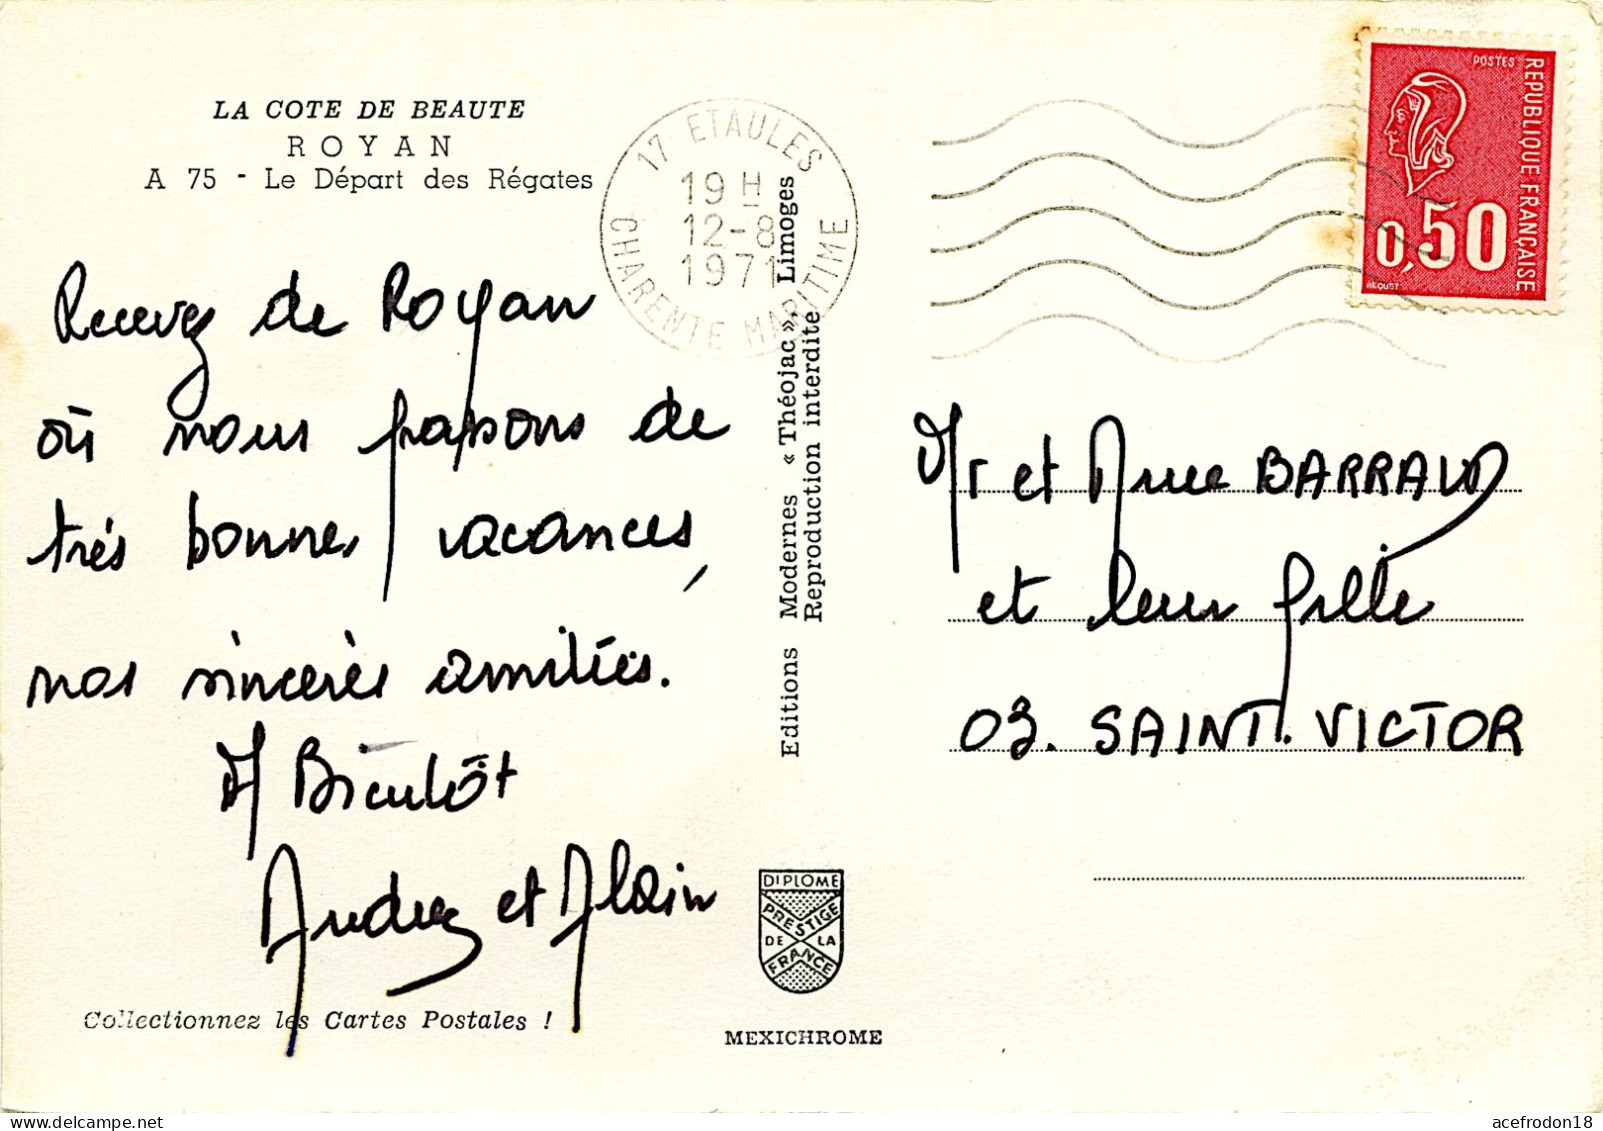 LA COTE DE BEAUTE
ROYAN
A 75 - Le Départ des Régates
Recevez de Royan
où nous passons de
très bonnes vacances,
nos sincères amitiés.
A Bientôt
Andrée et Alain
Collectionnez les Cartes Postales !
17 ETAULES
19 H
12-8
1971
CHARENTE MARITIME
Editions Modernes « Théojac », Limoges
Reproduction interdite
DIPLOME
PRESTIGE
DE LA
FRANCE
MEXICHROME
POSTES
REPUBLIQUE FRANÇAISE
0,50
BEQUET
Mr et Mme BARRAUD
et leur fille
03. SAINT. VICTOR
acefrodon18